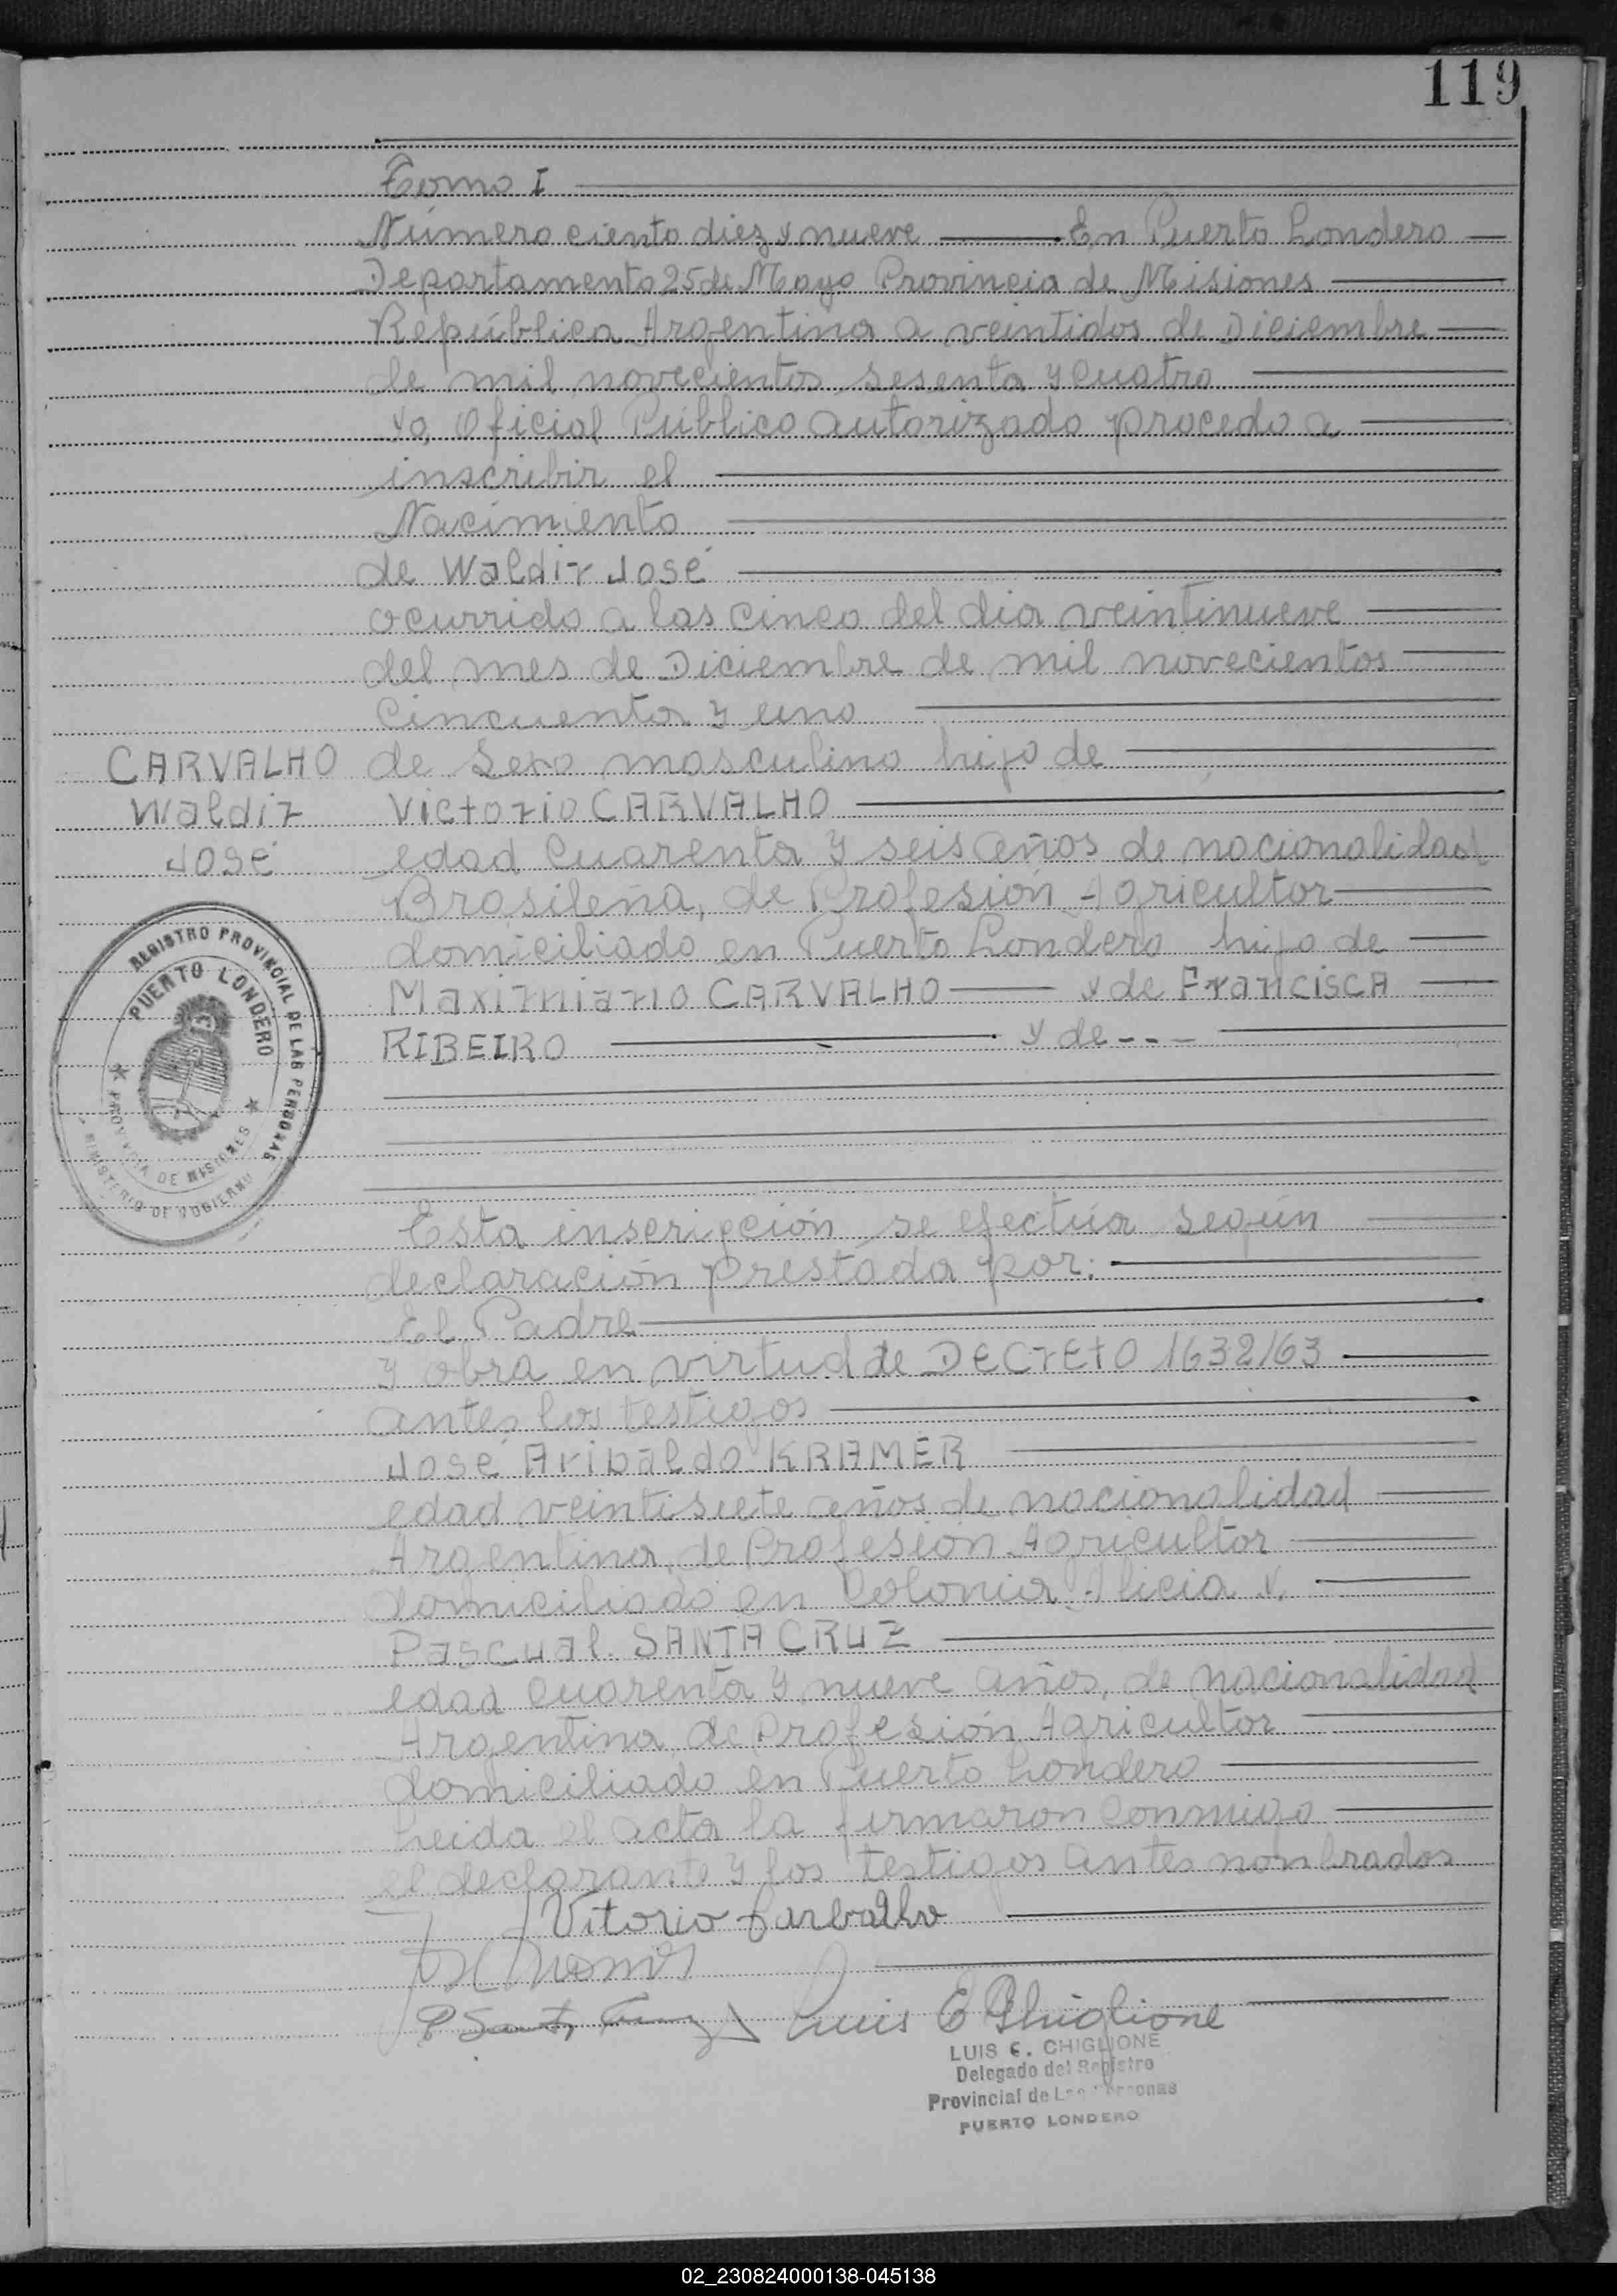 119
Tomo I
Número ciento diez y nueve En Puerto Londero
Departamento 25 de Mayo Provincia de Misiones
República Argentina a veintidos de Diciembre
de mil novecientos sesenta y cuatro
yo, Oficial Público autorizado procedo a
inscribir el
Nacimiento
de Waldir José
ocurrido a las cinco del dia veintinueve
del mes de Diciembre de mil novecientos
cincuenta y uno
CARVALHO
Waldir
José
de Sexo masculino hijo de
Victorio CARVALHO
edad cuarenta y seis años de nacionalidad
Brasileña, de Profesión Agricultor
domiciliado en Puerto Londero hijo de
Maximiano CARVALHO y de Francisca
RIBEIRO y de ---
REGISTRO PROVINCIAL DE LAS PERSONAS
PUERTO LONDERO
PROVINCIA DE MISIONES
MINISTERIO DE GOBIERNO
Esta inscripción se efectúa según
declaración prestada por:
El Padre
y obra en virtud de DECRETO 1632/63
antes los testigos
José Aribaldo KRAMER
edad veintisiete años de nacionalidad
Argentina, de Profesión Agricultor
domiciliado en Colonia Alicia y,
Pascual SANTA CRUZ
edad cuarenta y nueve años, de nacionalidad
Argentina, de Profesión Agricultor
domiciliado en Puerto Londero
Leida el acta la firmaron conmigo
el declarante y los testigos antes nonbrados
Vitorio Carbalho
P Santa Cruz Luis E Ghiglione
LUIS E. CHIGLIONE
Delegado del Registro
Provincial de Las Personas
PUERTO LONDERO
02_230824000138-045138